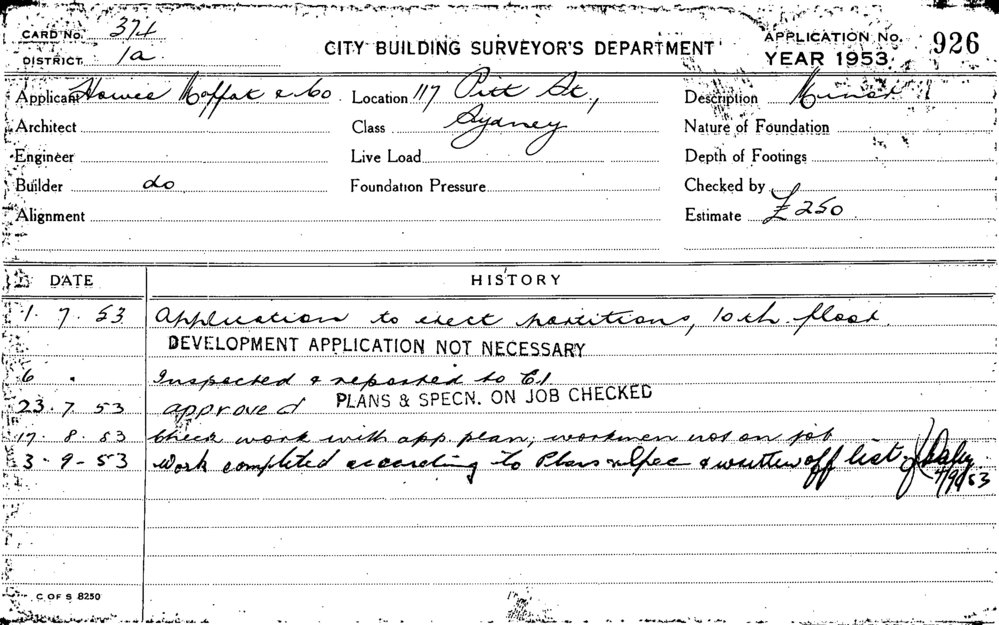 CARD No. 374
DISTRICT 1a
CITY BUILDING SURVEYOR'S DEPARTMENT
APPLICATION No. 926
YEAR 1953
Applicant Howes Moffat & Co. Location 117 Pitt St., Description Minor
Architect Class Sydney Nature of Foundation
Engineer Live Load Depth of Footings
Builder do Foundation Pressure Checked by
Alignment Estimate £250
DATE HISTORY
1. 7. 53 Application to erect partitions, 10th floor.
DEVELOPMENT APPLICATION NOT NECESSARY
6 " Inspected & reported to C.I.
23. 7. 53 approved PLANS & SPECN. ON JOB CHECKED
17. 8. 53 Check work with app. plan; workmen not on job
3-9-53 Work completed according to Plans & Spec & written off list
4/9/53
C OF S 8250